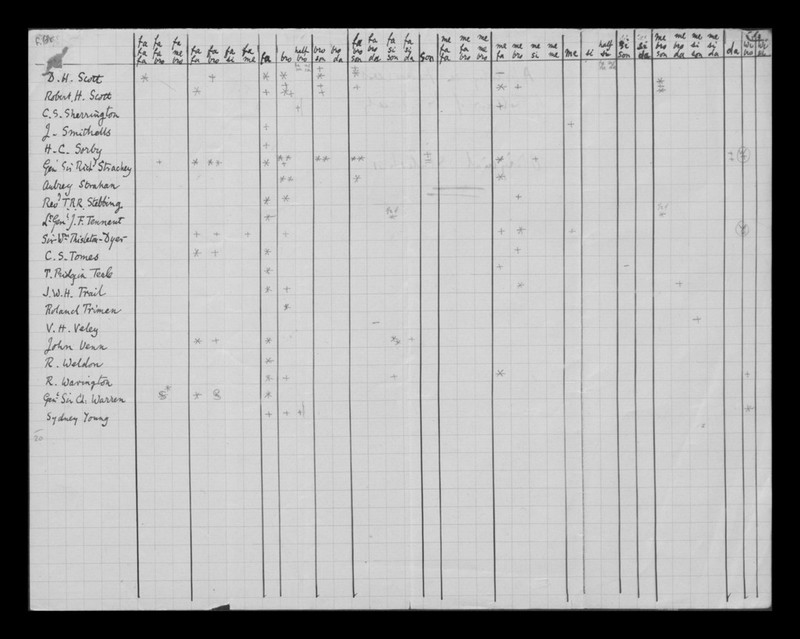 fa fa fa fa fa fa fa fa bro half bro bro bro fa fa fa fa son me me me me me me me me si half si si si me me me me da
fa fa me fa bro si me bro son da bro bro si si fa fa me fa bro si me si son da bro bro si si
fa bro bro son da son da fa bro bro son da son da
D. H. Scott
Robert H. Scott
C. S. Sherrington
J. Smithells
H. C. Sorby
Genl Sir Richd Strachey
Aubrey Strahan
Revd T. R. R. Stebbing
Lt Genl J. F. Tennant
Sir Wm Thiselton-Dyer
C. S. Tomes
T. Pridgin Teale
J. W. H. Trail
Roland Trimen
V. H. Veley
John Venn
R. Weldon
R. Warington
Genl Sir Ch. Warren
Sydney Young
20